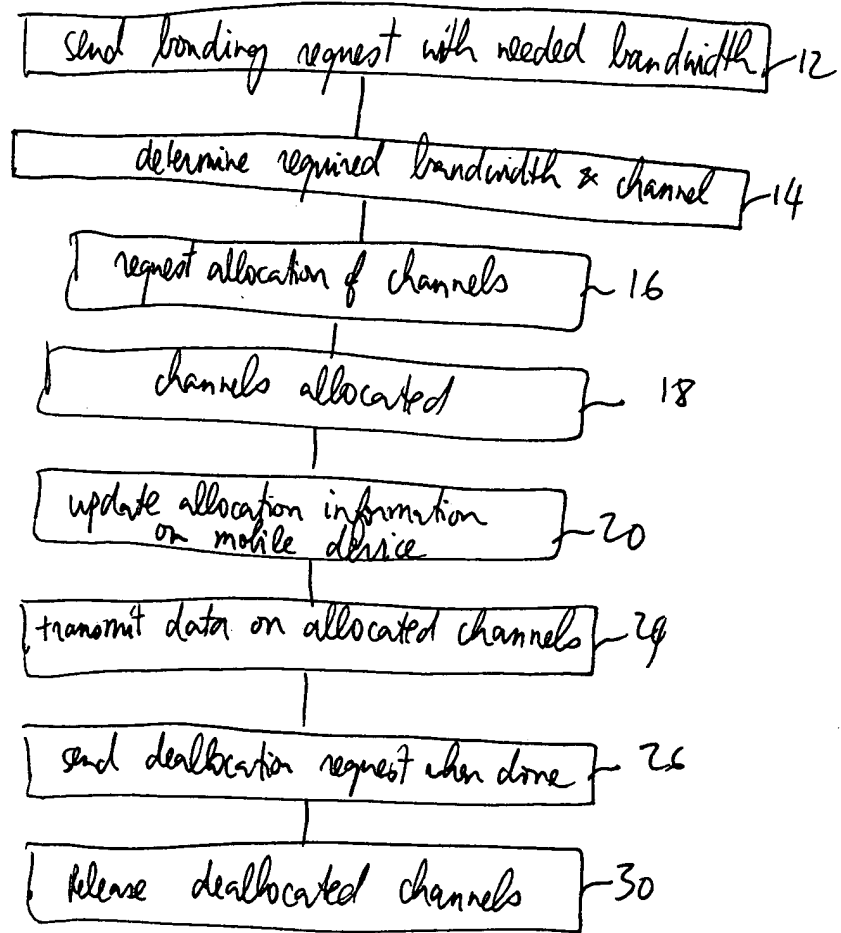 send bonding request with needed bandwidth 12
determine required bandwidth & channel 14
request allocation of channels 16
channels allocated 18
update allocation information
on mobile device 20
transmit data on allocated channels 24
send deallocation request when done 26
release deallocated channels 30